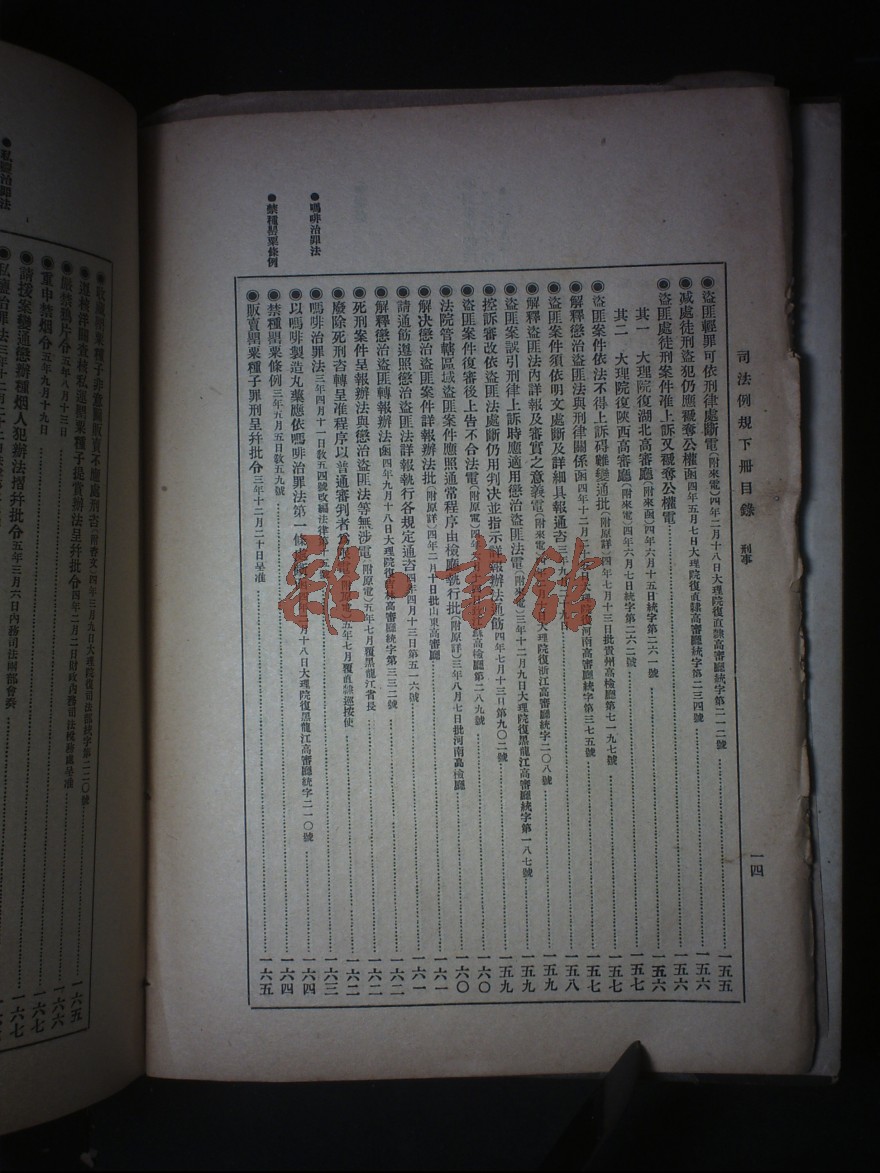 司法例規下冊目錄 刑事 一四
◉盜匪輕罪可依刑律處斷電(附來電)四年二月十八日大理院復直隸高審廳統字第二一二號 一五五
◉减處徒刑盜犯仍應褫奪公權函四年五月七日大理院復直隸高審廳統字第二三四號 一五六
◉盜匪處徒刑案件准上訴又褫奪公權電 一五六
其一 大理院復湖北高審廳(附來函)四年六月十五日統字第二六一號 一五七
其二 大理院復陝西高審廳(附來電)四年六月七日統字第二六二號 一五七
◉盜匪案件依法不得上訴碍難變通批(附原詳)四年七月十三日批貴州高檢廳第七一九七號 一五七
◉解釋懲治盜匪法與刑律關係函四年十二月二十七日大理院復河南高審廳統字第三七五號 一五八
◉盜匪案件須依明文處斷及詳細具報通咨三年九月二十九日 一五九
◉解釋盜匪法內詳報及審實之意義電(附來電)大理院復浙江高審廳統字二〇八號 一五九
◉盜匪案誤引刑律上訴時應適用懲治盜匪法電(附來電)三年十二月九日大理院復黑龍江高審廳統字第一八七號 一五九
◉控訴審改依盜匪法處斷仍用判決並指示詳報辦法通飭四年七月十三日第九〇二號 一五九
◉盜匪案件復審後上告不合法電(附原電)高檢廳第二八九號 一六〇
◉法院管轄區域盜匪案件應照通常程序由檢廳執行批(附原詳)三年八月七日批河南高檢廳 一六〇
◉解决懲治盜匪案件詳報辦法批(附原詳)四年二月十日批山東高審廳 一六一
◉請通飭遵照懲治盜匪法詳報執行各規定通咨四年四月十三日第五一六號 一六一
◉解釋懲治盜匪轉報辦法函四年九月十八日大理院復吉林高審廳統字第三三二號 一六二
◉死刑案件呈報辦法與懲治盜匪法等無涉電(附原電)五年七月覆黑龍江省長 一六二
◉廢除死刑咨轉呈准程序以普通審判者為限電五年七月覆直隸巡按使 一六二
●嗎啡治罪法
◉嗎啡治罪法三年四月十一日敎五四號改編法律第十五號 一六三
◉以嗎啡製造丸藥應依嗎啡治罪法第一條處斷函二月十八日大理院復黑龍江高審廳統字二一〇號 一六四
●禁種罌粟條例
◉禁種罌粟條例三年五月五日敎五九號 一六四
◉販賣罌粟種子罪刑呈幷批令三年十二月二十日呈准 一六五
◉收藏罌粟種子非意圖販賣不應處刑咨(附咨文)四年三月九日大理院復司法部統字第二二〇號 一六五
種洋關查核私運罌粟種子提賞辦法呈幷批令四年二月二日財政內務司法稅務處呈准 一六六
◉嚴禁鴉片令五年八月十三日 一六六
◉重申禁烟令五年九月十九日 一六七
◉請援案變通懲辦種烟人犯辦法摺幷批令五年三月六日內務司法兩部會奏 一六七
●私鹽治罪法
◉私鹽治罪法三年十二月二十二日